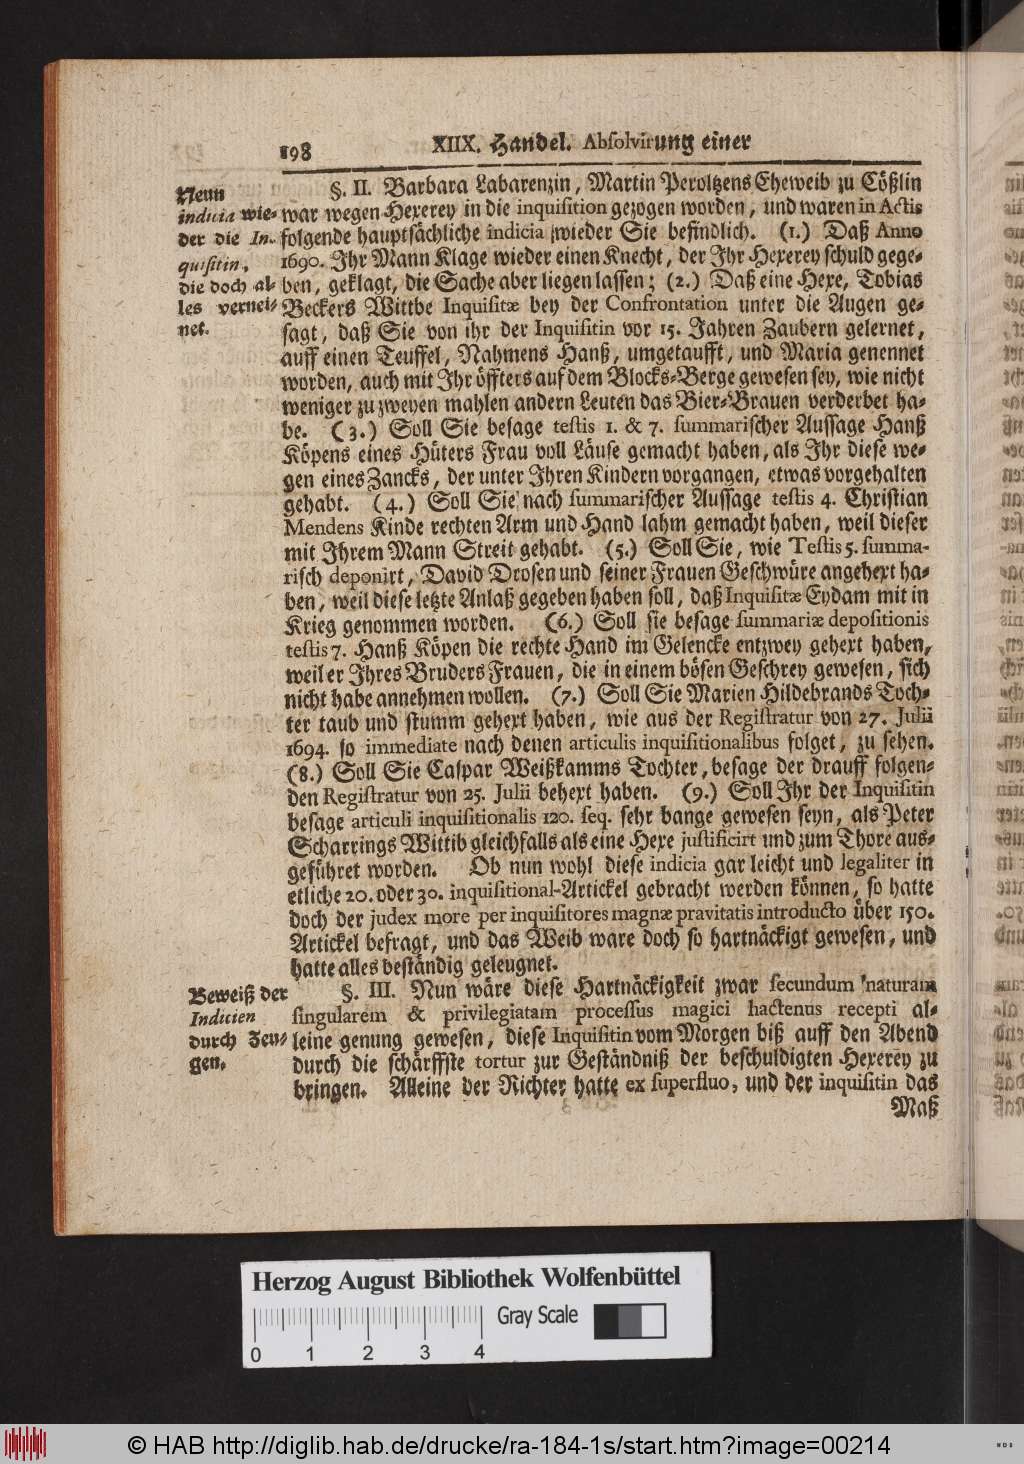 198
XIIX. Handel. Absolvirung einer
Neun
indicia wie-
der die In-
quisitin,
die doch al-
les vernei-
net.
§. II. Barbara Labarenzin, Martin Peroltzens Eheweib zu Cößlin
war wegen Hexerey in die inquisition gezogen worden, und waren in Actis
folgende hauptsächliche indicia zwieder Sie befindlich. (1.) Daß Anno
1690. Ihr Mann Klage wieder einen Knecht, der Ihr Hexerey schuld gege-
ben, geklagt, die Sache aber liegen lassen; (2.) Daß eine Hexe, Tobias
Beckers Wittbe Inquisitæ bey der Confrontation unter die Augen ge-
sagt, daß Sie von ihr der Inquisitin vor 15. Jahren Zaubern gelernet,
auff einen Teuffel, Nahmens Hanß, umgetaufft, und Maria genennet
worden, auch mit Ihr öffters auf dem Blocks-Berge gewesen sey, wie nicht
weniger zu zweyen mahlen andern Leuten das Bier-Brauen verderbet ha-
be. (3.) Soll Sie besage testis 1. & 7. summarischer Aussage Hanß
Köpens eines Hüters Frau voll Läuse gemacht haben, als Ihr diese we-
gen eines Zancks, der unter Ihren Kindern vorgangen, etwas vorgehalten
gehabt. (4.) Soll Sie nach summarischer Aussage testis 4. Christian
Mendens Kinde rechten Arm und Hand lahm gemacht haben, weil dieser
mit Ihrem Mann Streit gehabt. (5.) Soll Sie, wie Testis 5. summa-
risch deponirt, David Drosen und seiner Frauen Geschwüre angehext ha-
ben, weil diese letzte Anlaß gegeben haben soll, daß Inquisitæ Eydam mit in
Krieg genommen worden. (6.) Soll sie besage summariæ depositionis
testis 7. Hanß Köpen die rechte Hand im Gelencke entzwey gehext haben,
weil er Ihres Bruders Frauen, die in einem bösen Geschrey gewesen, sich
nicht habe annehmen wollen. (7.) Soll Sie Marien Hildebrands Toch-
ter taub und stumm gehext haben, wie aus der Registratur von 27. Julii
1694. so immediate nach denen articulis inquisitionalibus folget, zu sehen.
(8.) Soll Sie Caspar Weißkamms Tochter, besage der drauff folgen-
den Registratur von 25. Julii behext haben. (9.) Soll Ihr der Inquisitin
besage articuli inquisitionalis 120. seq. sehr bange gewesen seyn, als Peter
Scharrings Wittib gleichfalls als eine Hexe justificirt und zum Thore aus-
geführet worden. Ob nun wohl diese indicia gar leicht und legaliter in
etliche 20. oder 30. inquisitional-Artickel gebracht werden können, so hatte
doch der judex more per inquisitores magnæ pravitatis introducto über 150.
Artickel befragt, und das Weib ware doch so hartnäckigt gewesen, und
hatte alles beständig geleugnet.
Beweiß der
Indicien
durch Zeu-
gen.
§. III. Nun wäre diese Hartnäckigkeit zwar secundum naturam
singularem & privilegiatam processus magici hactenus recepti al-
leine genung gewesen, diese Inquisitin vom Morgen biß auff den Abend
durch die schärffste tortur zur Geständniß der beschuldigten Hexerey zu
bringen. Alleine der Richter hatte ex superfluo, und der inquisitin das
Maß
Herzog August Bibliothek Wolfenbüttel
Gray Scale
0 1 2 3 4
© HAB http://diglib.hab.de/drucke/ra-184-1s/start.htm?image=00214